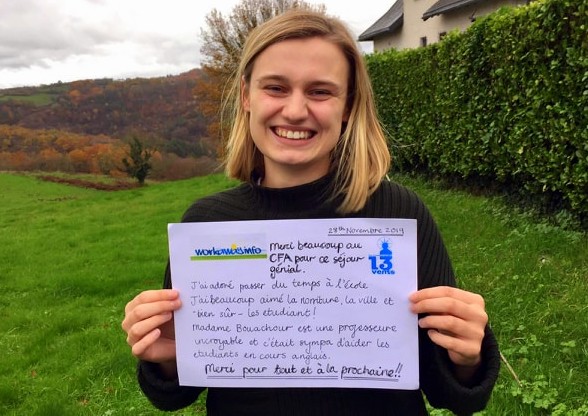 28th Novembre 2019
workawayinfo
Merci beaucoup au
CFA pour ce séjour
génial.
13
vents
J'ai adoré passer du temps à l'école
J'ai beaucoup aimé la norriture, la ville et
bien sûr - les etudiant!
Madame Bouachour est une professeure
incroyable et c'était sympa d'aider les
etudiants en cours anglais.
Merci pour tout et à la prochaine!!